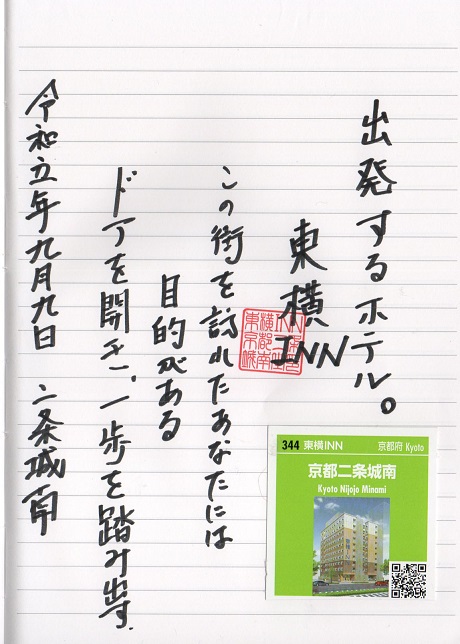 出発するホテル。
東横INN
この街を訪れたあなたには
目的がある
ドアを開き、一歩を踏み出す.
令和五年九月九日 二条城南
344 東横INN 京都府 Kyoto
京都二条城南
Kyoto Nijojo Minami